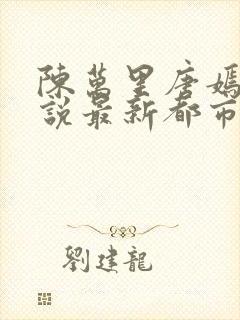 陳萬里唐嫣
說最新都市
劉建龍